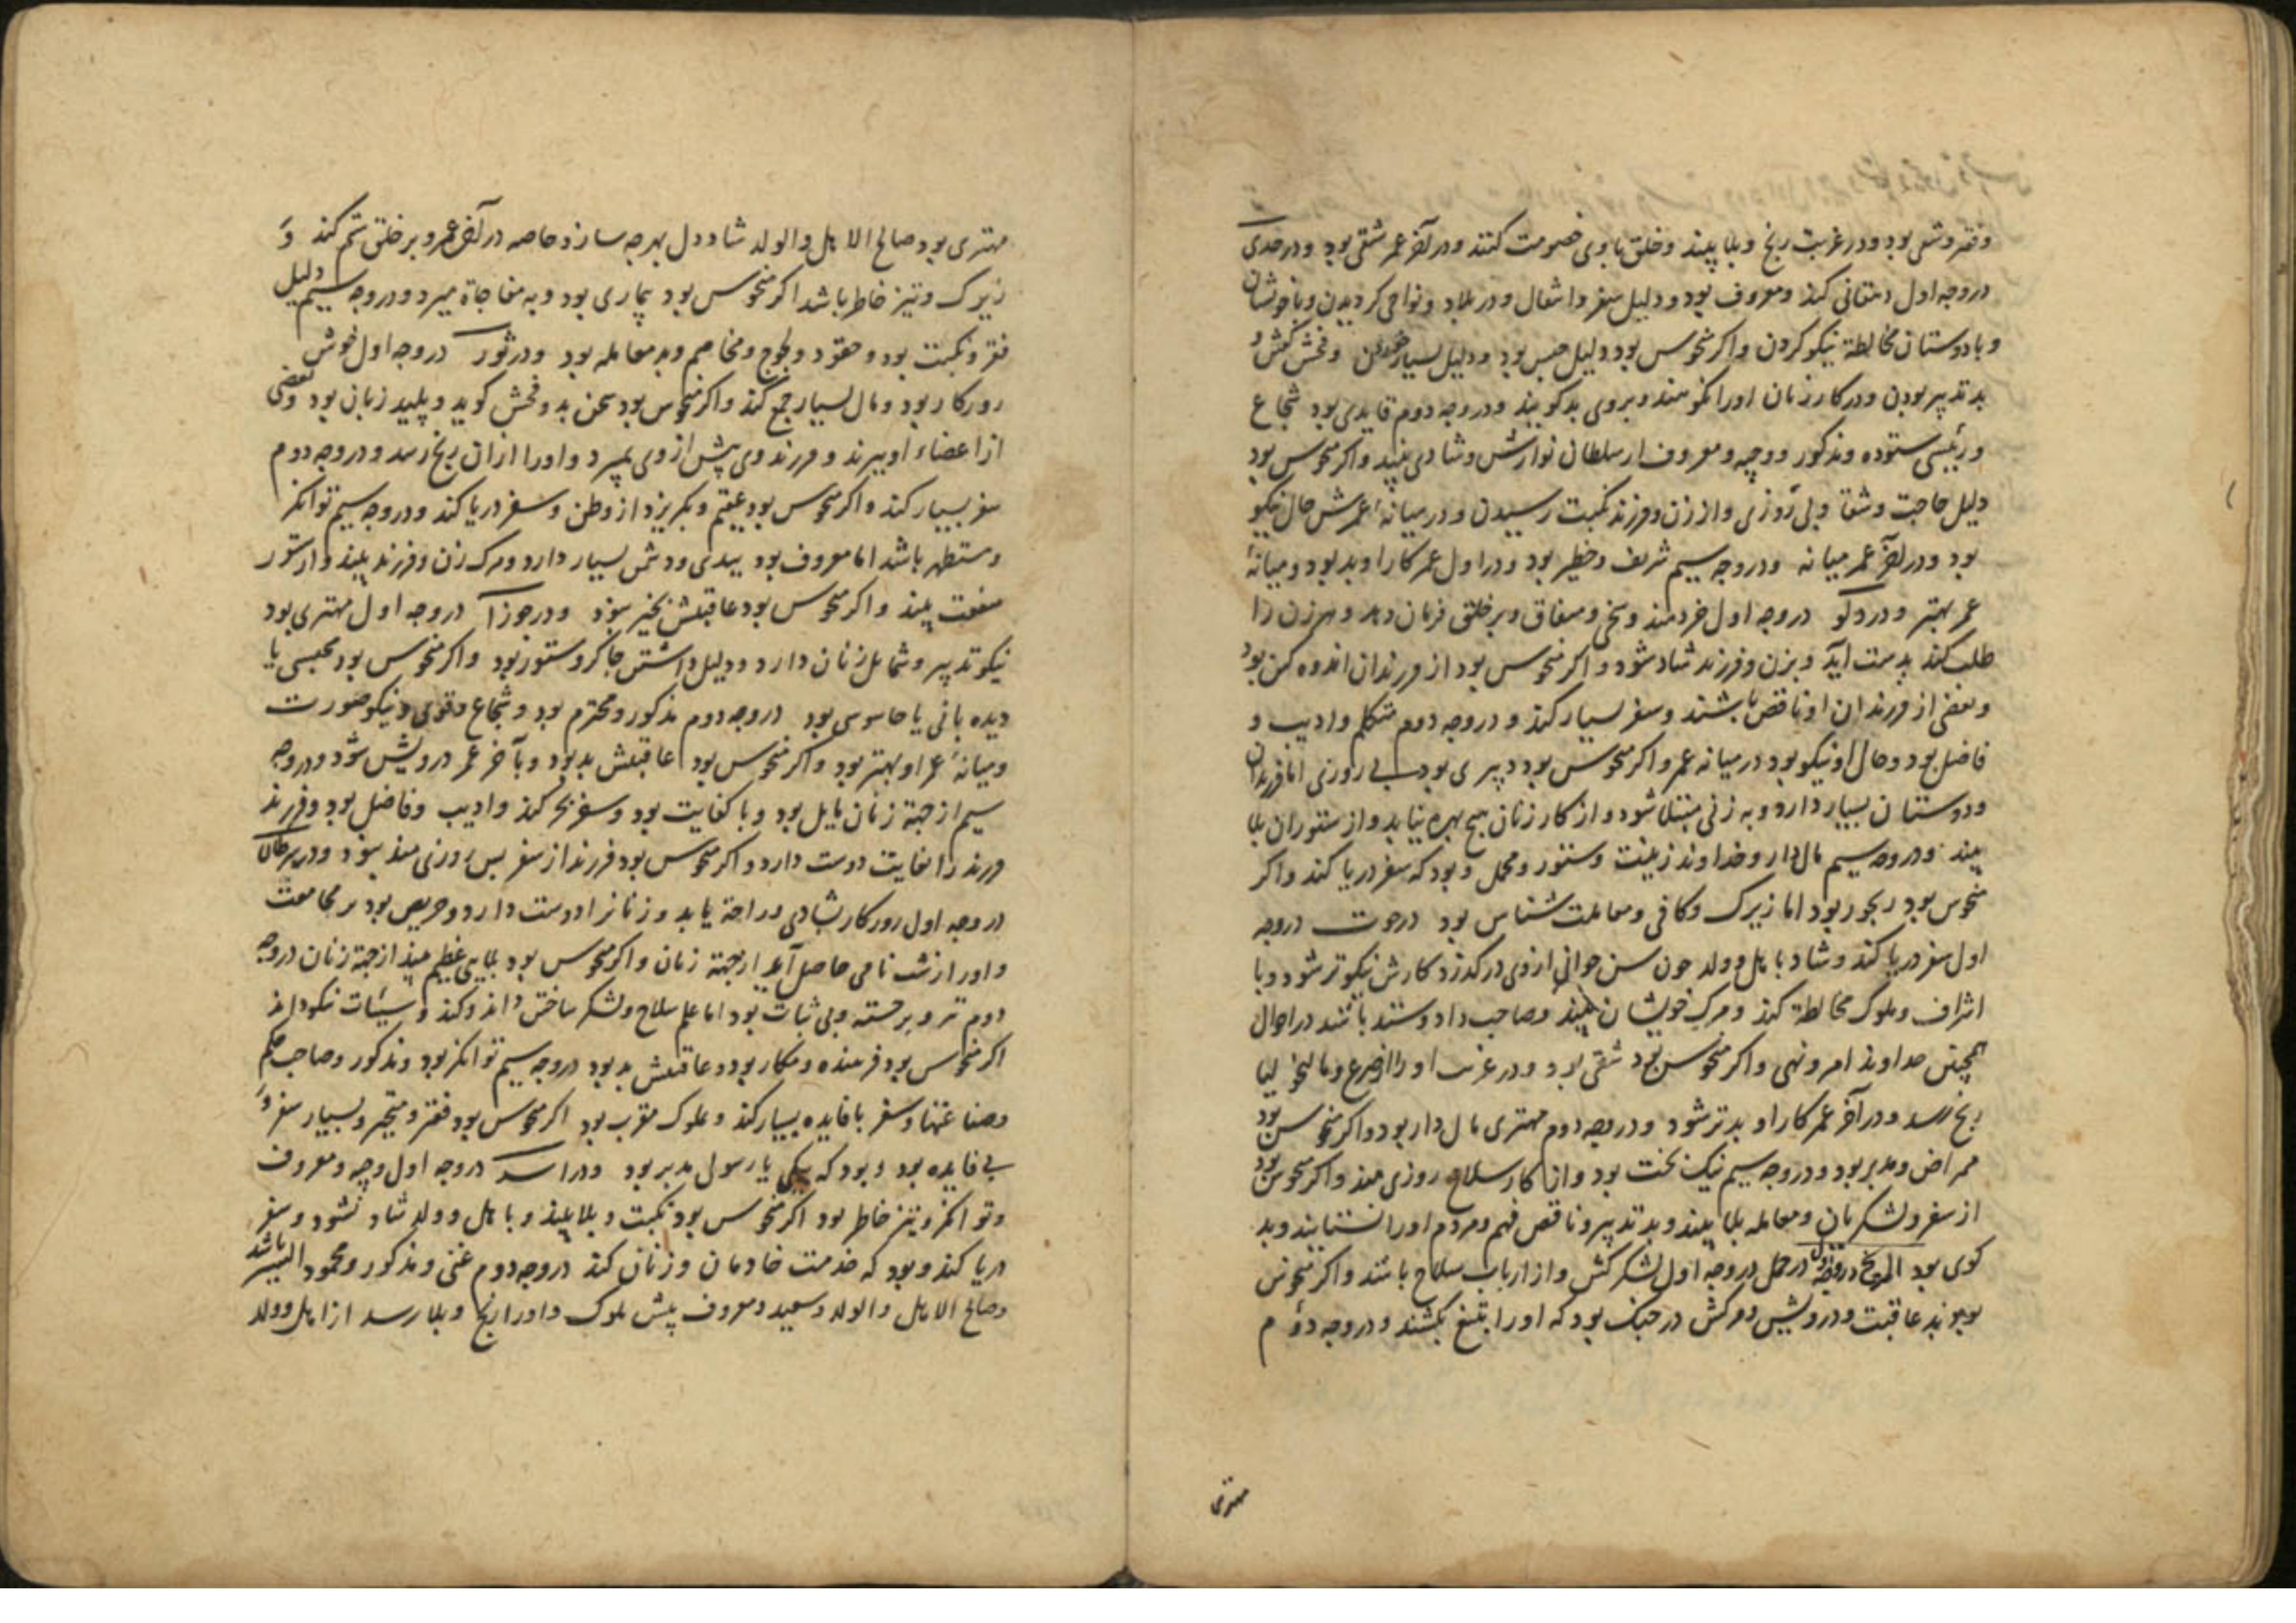 وفقر وشقی بود ودر غربت رنج وبلا بیند وخلق با وی خصومت کنند ودر آخر عمر شقی بود ودر جدی
در وجه اول دهقانی کند ومعروف بود ودلیل سفر واشغال ودر بلاد ونواحی کردیدن وبا خویشان
وبا دوستان مخالطة نیکو کردن واکر منحوس بود دلیل حبس بود ودلیل بسیار وفحش کفتن و
بد تدبیر بودن ودر کار زنان اورا نکوهند وبروی بد کویند ودر وجه دوم قایدی بود شجاع
ورئیسی ستوده ومذکور ووجیه ومعروف از سلطان نوازش وشادی بیند واکر منحوس بود
دلیل حاجت وشقا وبی روزی واز زن وفرزند نکبت رسیدن ودر میانهٔ عمرش حال نیکو
بود ودر آخر عمر میانه ودر وجه سیم شریف وخطیر بود ودر اول عمر کار او بد بود ومیانهٔ
عمر بهتر ودر دلو در وجه اول خردمند وسخی وبر خلق فرمان دهد وهر زن را
طلب کند بدست آید وبزن وفرزند شاد شود واکر منحوس بود از فرزندان اندوه کن بود
وبعضی از فرزندان او ناقص باشند وسفر بسیار کند ودر وجه دوم متکلم وادیب و
فاضل بود وحال او نیکو بود در میانه عمر واکر منحوس بود دبیری بود بی روزی اما فرزندان
ودوستان بسیار دارد وبه زنی مبتلا شود واز کار زنان هیچ بهره نیابد واز ستوران بلا
بیند ودر وجه سیم مال دار وخداوند زینت وستور ومحمل وبود که سفر دریا کند واکر
منحوس بود رنجور بود اما زیرک وکافی ومعاملت شناس بود در حوت در وجه
اول سفر دریا کند وشاد باهل وولد چون سن جوانی از وی در کذرد کارش نیکوتر شود وبا
اشراف وملوک مخالطة کند ومرک خویشان بیند وصاحب داد وستد باشد در احوال
همچنین خداوند امر ونهی واکر منحوس بود شقی بود ودر غربت او را از صرع ومالیخولیا
رنج رسد ودر آخر عمر کار او بدتر شود ودر وجه دوم مهتری مال دار بود واکر منحوس بود
ممراض ومدبر بود ودر وجه سیم نیک بخت بود واز کار سلاح روزی مند واکر منحوس بود
از سفر ولشکریان ومعامله بلا بیند وبد تدبیر وناقص فهم ومردم اورا نستایند وبد
کوی بود المریخ در حمل در وجه اول لشکر کش واز ارباب سلاح باشد واکر منحوس
بود بد عاقبت ودرویش ومرکش در جنک بود که اورا بتیغ بکشند ودر وجه دوم
مهتری
مهتری بود صالح الاهل والولد شاد دل بهر چه سازد خاصه در آخر عمر وبر خلق ستم کند و
زیرک وتیز خاطر باشد اکر منحوس بود بیماری بود وبه مفاجاة میرد ودر وجه سیم دلیل
فقر ونکبت بود وحقود ولجوج ومخاصم وبد معامله بود ودر ثور در وجه اول خوش
روزکار بود ومال بسیار جمع کند واکر منحوس بود سخن بد وفحش کوید وپلید زبان بود وبعضی
از اعضاء او ببرند وفرزند وی پیش از وی بمیرد واورا از ان رنج رسد ودر وجه دوم
سفر بسیار کند واکر منحوس بود عقیم وبکریزد از وطن وسفر دریا کند ودر وجه سیم توانکر
ومستظهر باشد اما معروف بود ببدی ودشمن بسیار دارد ومرک زن وفرزند بیند واز ستور
منفعت بیند واکر منحوس بود عاقبتش بخیر نبود ودر جوزا در وجه اول مهتری بود
نیکو تدبیر وشمایل زنان دارد ودلیل داشتن چاکر وستور بود واکر منحوس بود محبسی یا
دیده بانی یا جاسوسی بود در وجه دوم مذکور ومحترم بود وشجاع وقوی ونیکو صورت
ومیانهٔ عمر او بهتر بود واکر منحوس بود عاقبتش بد بود وبآخر عمر درویش شود ودر وجه
سیم از جهة زنان مایل بود وبا کفایت بود وسفر بحر کند وادیب وفاضل بود وفرزند
فرزند را بغایت دوست دارد واکر منحوس بود فرزند از سفر بس روزی مند نبود ودر سرطان
در وجه اول روزکار بشادی وراحة یابد وزنانرا دوست دارد وحریص بود بر مجامعت
واورا زشت نامی حاصل آید از جهة زنان واکر منحوس بود بلایی عظیم بیند از جهة زنان در وجه
دوم وبی ثبات بود اما علم سلاح ولشکر ساختن داند وکند وسیئات نیکو داند
اکر منحوس بود فریبنده ومکار بود وعاقبتش بد بود در وجه سیم توانکر بود ومذکور وصاحب حکم
وصناعتها وسفر با فایده بسیار کند وبملوک مقرب بود اکر منحوس بود فقیر ومتحیر وبسیار سفر و
بی فایده بود وبود که پیکی یا رسول مدبر بود ودر اسد در وجه اول وجیه ومعروف
وتوانکر وتیز خاطر بود اکر منحوس بود نکبت وبلا بیند وباهل وولد شاد نشود وسفر
دریا کند وبود که خدمت خادمان وزنان کند در وجه دوم غنی ومذکور ومحمود السیر باشد
وصالح الاهل والولد وسعید ومعروف پیش ملوک واورا رنج وبلا رسد از اهل وولد